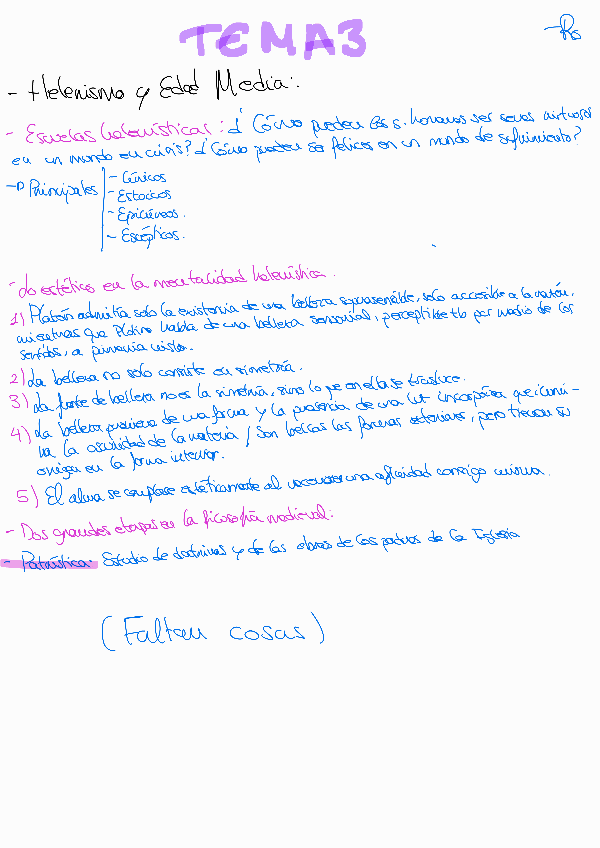 TEMA3
Rs
- Helenismo y Edad Media:
- Escuelas helenísticas: ¿Cómo pueden los s. humanos ser seres virtuosos
en un mundo en crisis? ¿Cómo pueden ser felices en un mundo de sufrimiento?
→ Principales
- Cínicos
- Estoicos
- Epicúreos.
- Escépticos.
- Lo estético en la mentalidad helenística.
1) Platón admitía solo la existencia de una belleza suprasensible, solo accesible a la razón,
mientras que Plotino habla de una belleza sensorial, perceptible tb por medio de los
sentidos, a primera vista.
2) La belleza no solo consiste en simetría.
3) La fuente de belleza no es la simetría, sino lo que en ella se trasluce.
4) La belleza proviene de una forma y la presencia de una luz incorpórea que ilumi-
na la oscuridad de la materia / Son bellas las formas exteriores, pero tienen su
origen en la forma interior.
5) El alma se complace estéticamente al reconocer una afinidad consigo misma.
- Dos grandes etapas en la filosofía medieval:
- Patrística: Estudio de doctrinas y de las obras de los padres de la Iglesia
(Faltan cosas)